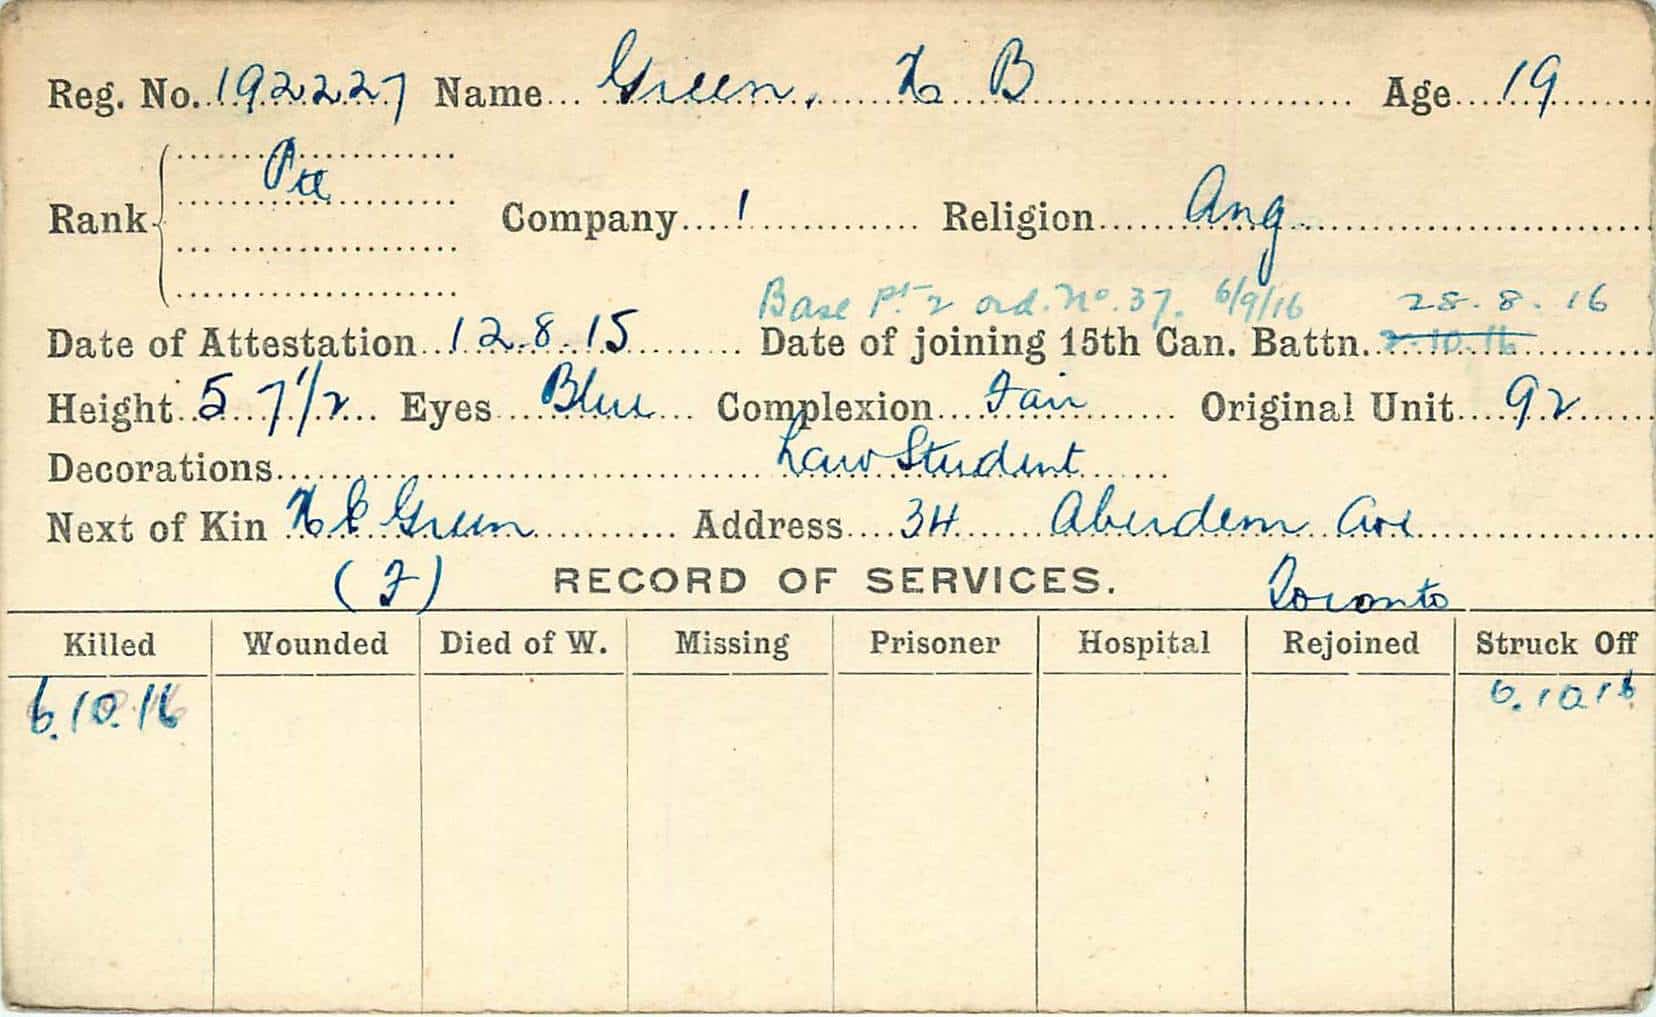 Reg. No. 192227 Name Green, H B Age 19
Rank Pte Company 1 Religion Ang
Base pt 2 ord. No. 37. 6/9/16 28.8.16
Date of Attestation 12.8.15 Date of joining 15th Can. Battn. 2.10.16
Height 5 7 1/2 Eyes Blue Complexion Fair Original Unit 92
Decorations Law Student
Next of Kin H C Green Address 34 Aberdeen Ave
(F) RECORD OF SERVICES. Toronto
Killed Wounded Died of W. Missing Prisoner Hospital Rejoined Struck Off
6.10.16 6.10.16